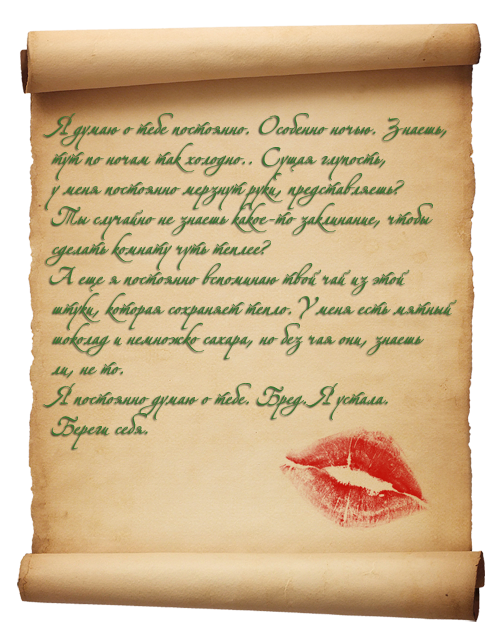 Я думаю о тебе постоянно. Особенно ночью. Знаешь,
тут по ночам так холодно.. Сущая глупость,
у меня постоянно мерзнут руки, представляешь?
Ты случайно не знаешь какое-то заклинание, чтобы
сделать комнату чуть теплее?
А еще я постоянно вспоминаю твой чай из этой
штуки, которая сохраняет тепло. У меня есть мятный
шоколад и немножко сахара, но без чая они, знаешь
ли, не то.
Я постоянно думаю о тебе. Бред. Я устала.
Береги себя.